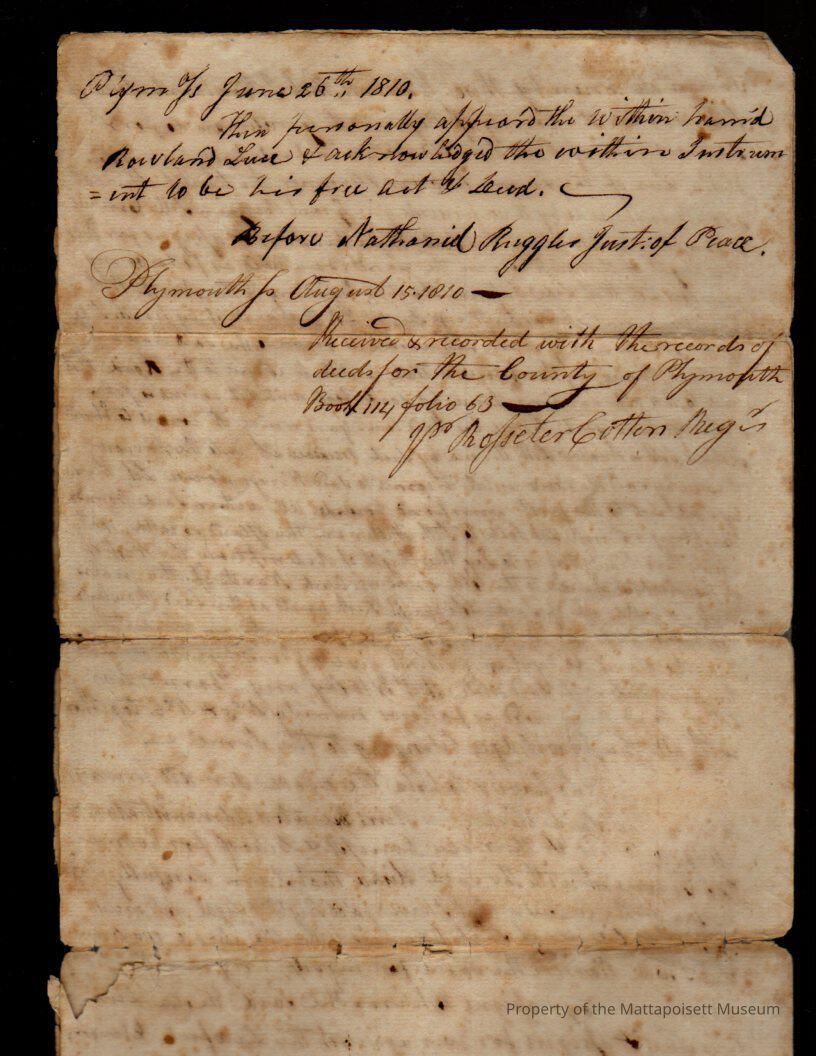 Plym Ss June 26th 1810.
Then personally appeard the within namd
Rowland Luce & acknowledged the within Instrum
=ent to be his free Act & Deed.
Before Nathaniel Ruggles Just: of Peace.
Plymouth Ss August 15. 1810 —
Received & recorded with the records of
deeds for the County of Plymouth
Book 114 folio 63 —
pr Rosseter Cotten Regr
Property of the Mattapoisett Museum